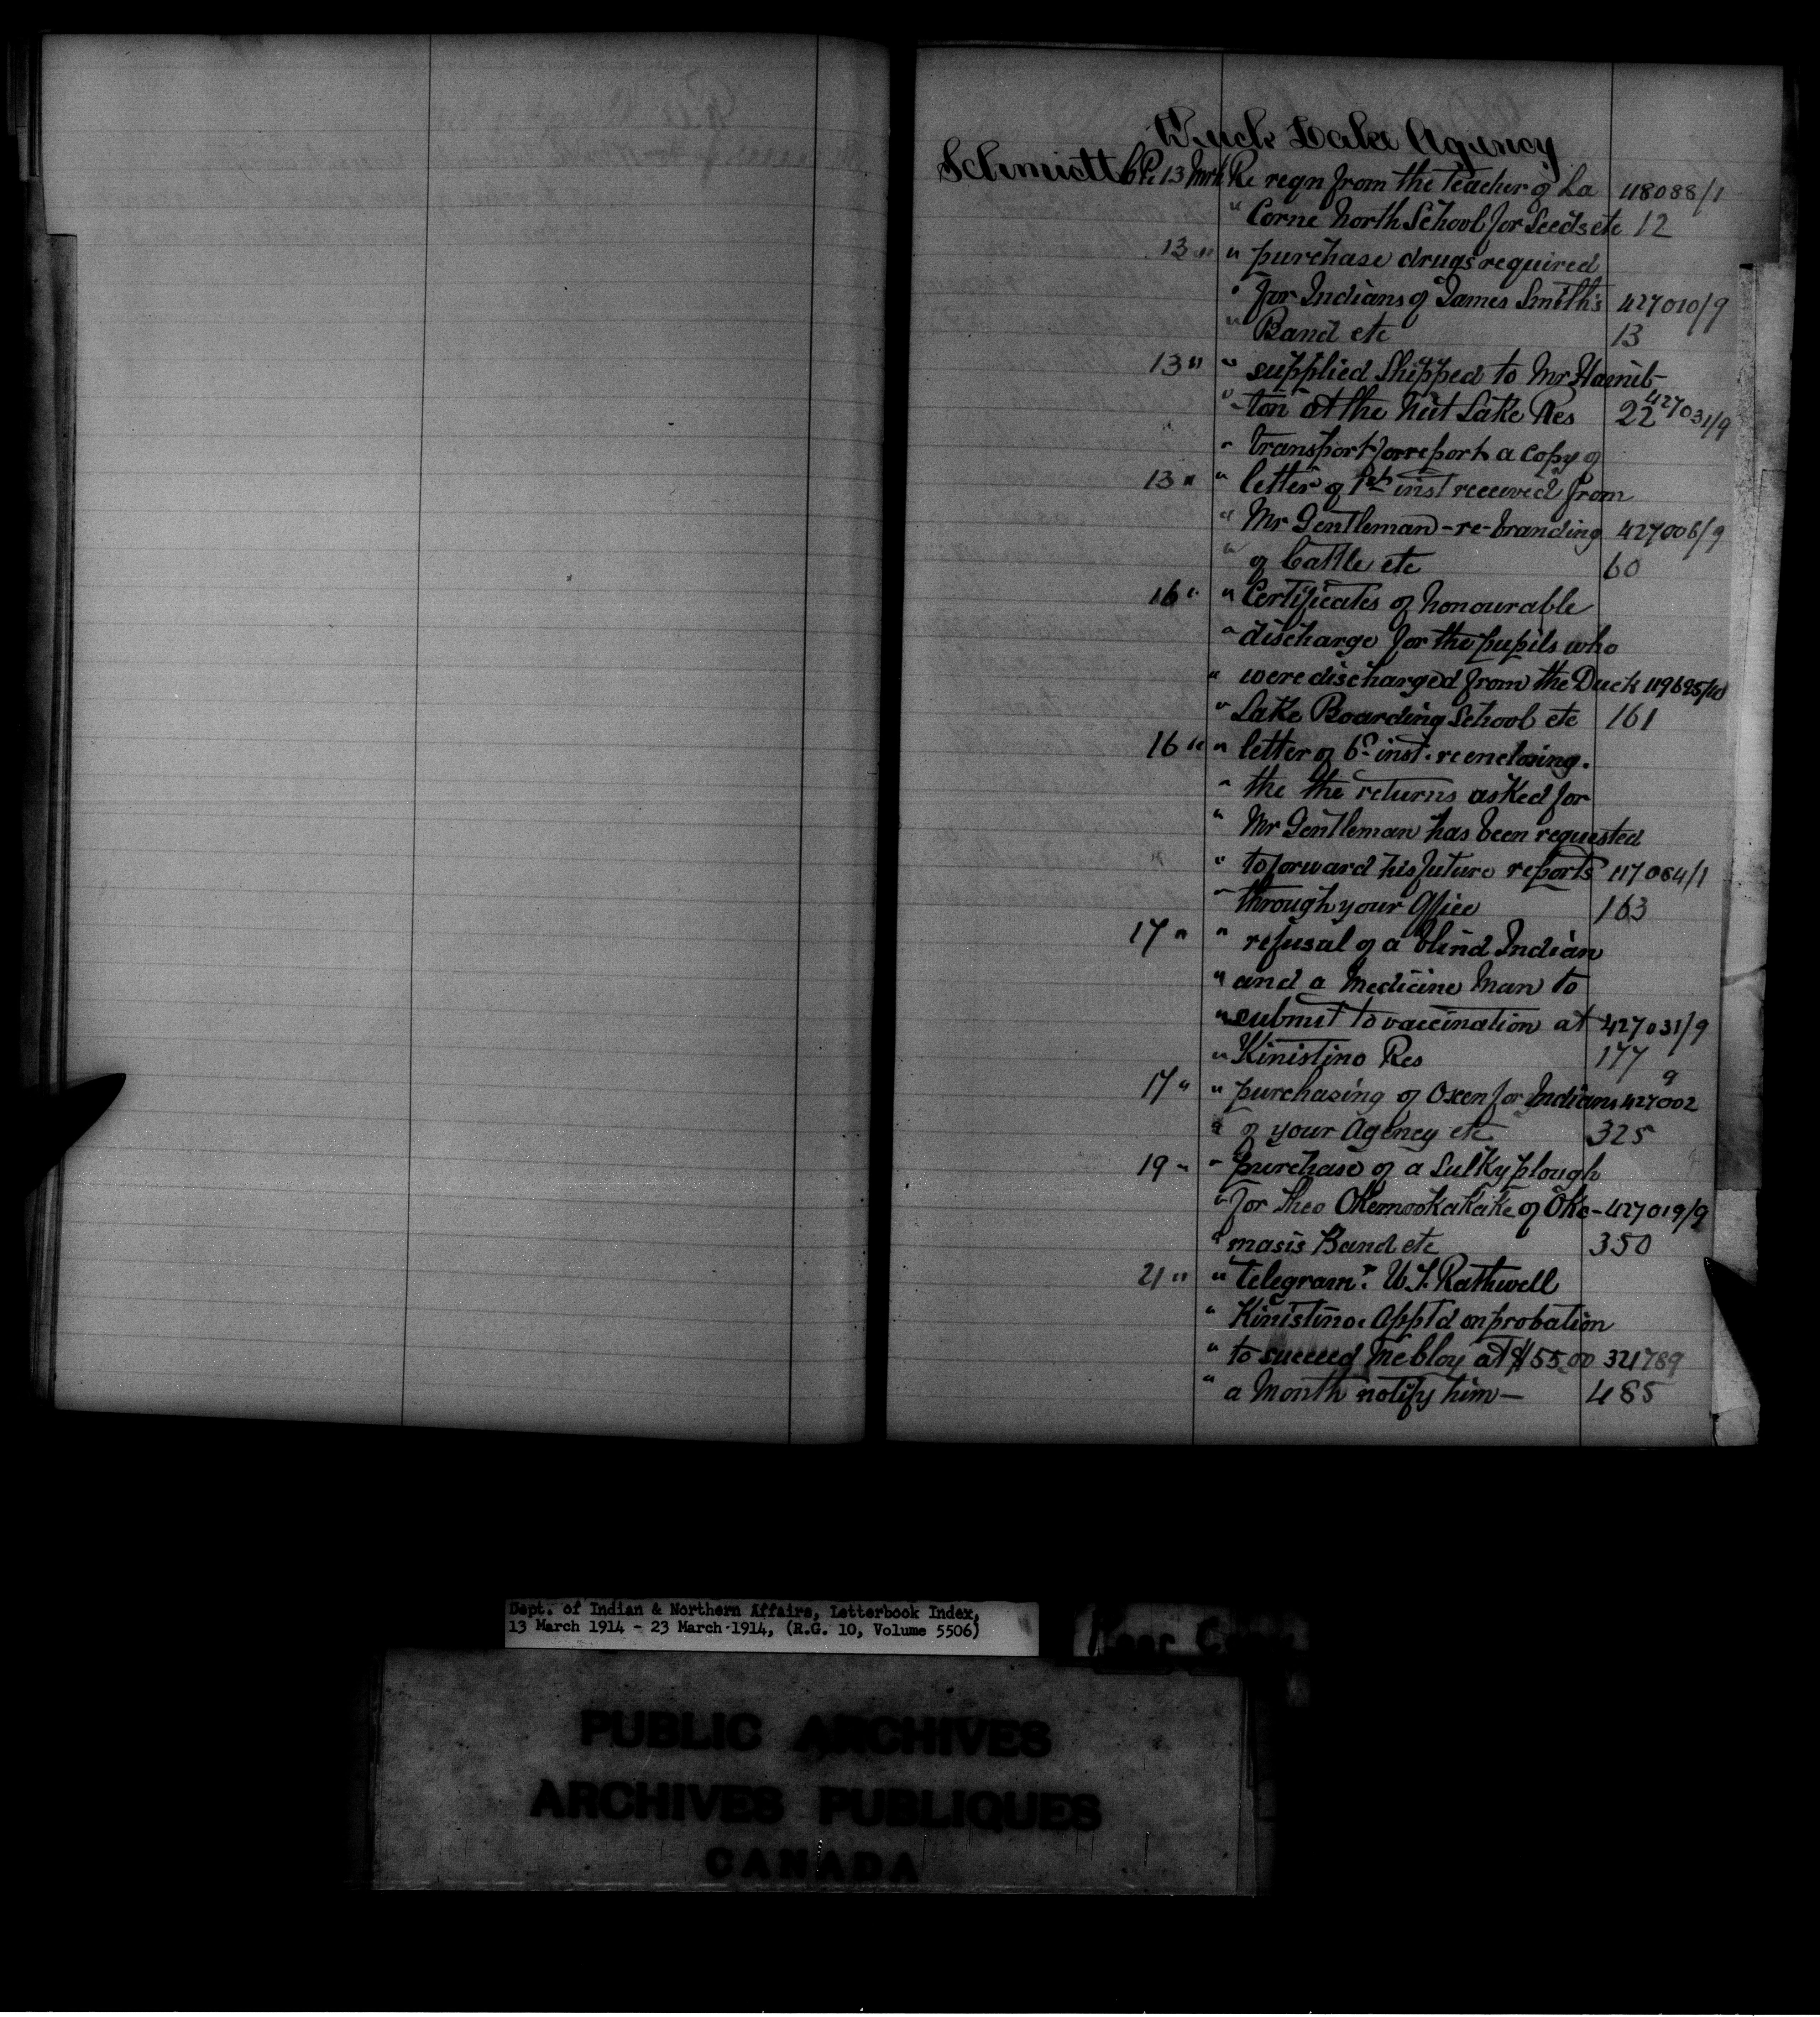 Duck Lake Agency
Schmidt C.P. 13 Mrh Re reqn from the teacher of La 118088/1
" Corne North School for Seeds etc 12
13 " " purchase drugs required
" for Indians of James Smith's 427010/9
" Band etc 13
13 " " supplied Shipped to Mr Hamil-
" -ton at the Nut Lake Res 22 427031/9
" transport for report a copy of
13 " " letter of 1st inst received from
" Mr Gentleman - re - branding 427006/9
" of Cattle etc 60
16 " " Certificates of honourable
" discharge for the pupils who
" were discharged from the Duck 119695/10
" Lake Boarding School etc 161
16 " " letter of 6th inst. re enclosing.
" the the returns asked for
" Mr Gentleman has been requested
" to forward his future reports 117064/1
" through your Office 163
17 " " refusal of a blind Indian
" and a Medicine Man to
" submit to vaccination at 427031/9
" Kinistino Res 177
17 " " purchasing of Oxen for Indians 427002 9
" of your Agency etc 325
19 " " purchase of a Sulky plough
" for Theo Okemookakake of Oke- 427019/9
" masis Band etc 350
21 " " telegram. W.J. Rathwell
" Kinistino. App't'd on probation
" to succeed McCloy at $55.00 321789
" a Month notify him — 485
Dept. of Indian & Northern Affairs, Letterbook Index,
13 March 1914 - 23 March 1914, (R.G. 10, Volume 5506)
PUBLIC ARCHIVES
ARCHIVES PUBLIQUES
CANADA